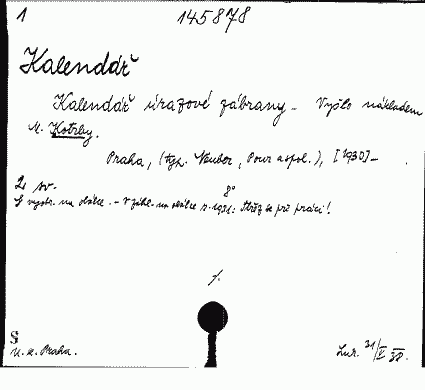 1 145878
Kalendář
Kalendář úrazové zábrany. Vyšlo nákladem
M. Kotrby.
Praha, (typ. Neuber, Pour a spol.), [1930]-
2 sv. 8°
S vyobr. na obálce. - V záhl. na obálce r. 1931: Střez se při práci!
S
U. k. Praha.